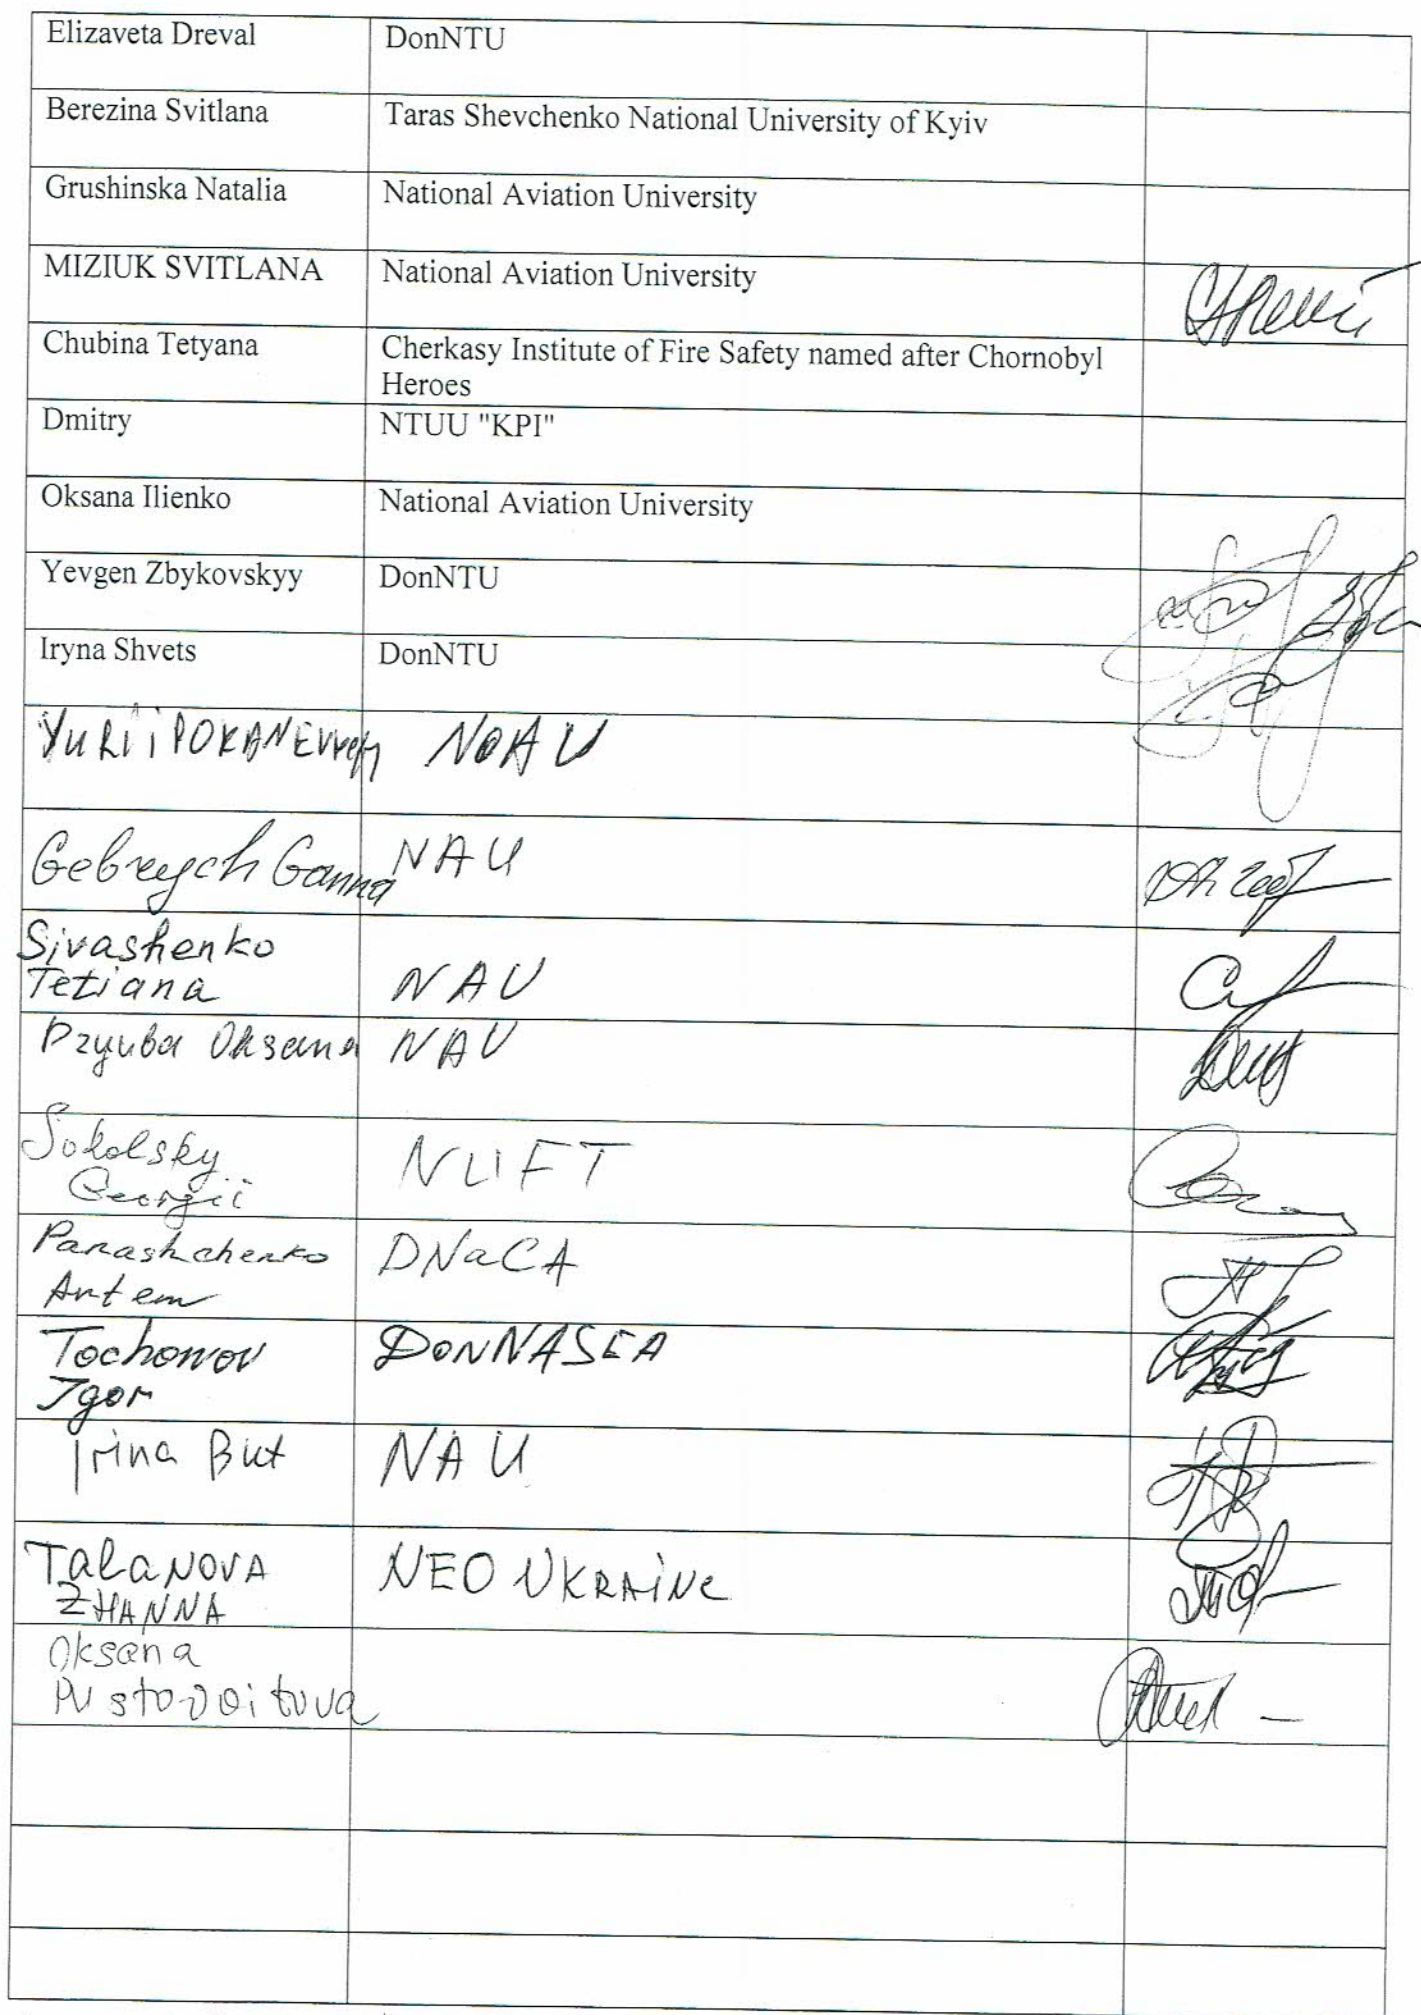 Elizaveta Dreval DonNTU
Berezina Svitlana Taras Shevchenko National University of Kyiv
Grushinska Natalia National Aviation University
MIZIUK SVITLANA National Aviation University
Chubina Tetyana Cherkasy Institute of Fire Safety named after Chornobyl
Heroes
Dmitry NTUU "KPI"
Oksana Ilienko National Aviation University
Yevgen Zbykovskyy DonNTU
Iryna Shvets DonNTU
YuRii NAU
Ganna NAU
Sivashenko
Tetiana NAU
Dzyuba Oksana NAU
Sokolsky NUFT
Georgii
Panashchenko DNaCA
Artem
DonNASEA
Igor
Irina But NAU
TalaNOVA NEO UKRAiNe
ZHANNA
Oksana
Pustovoitova